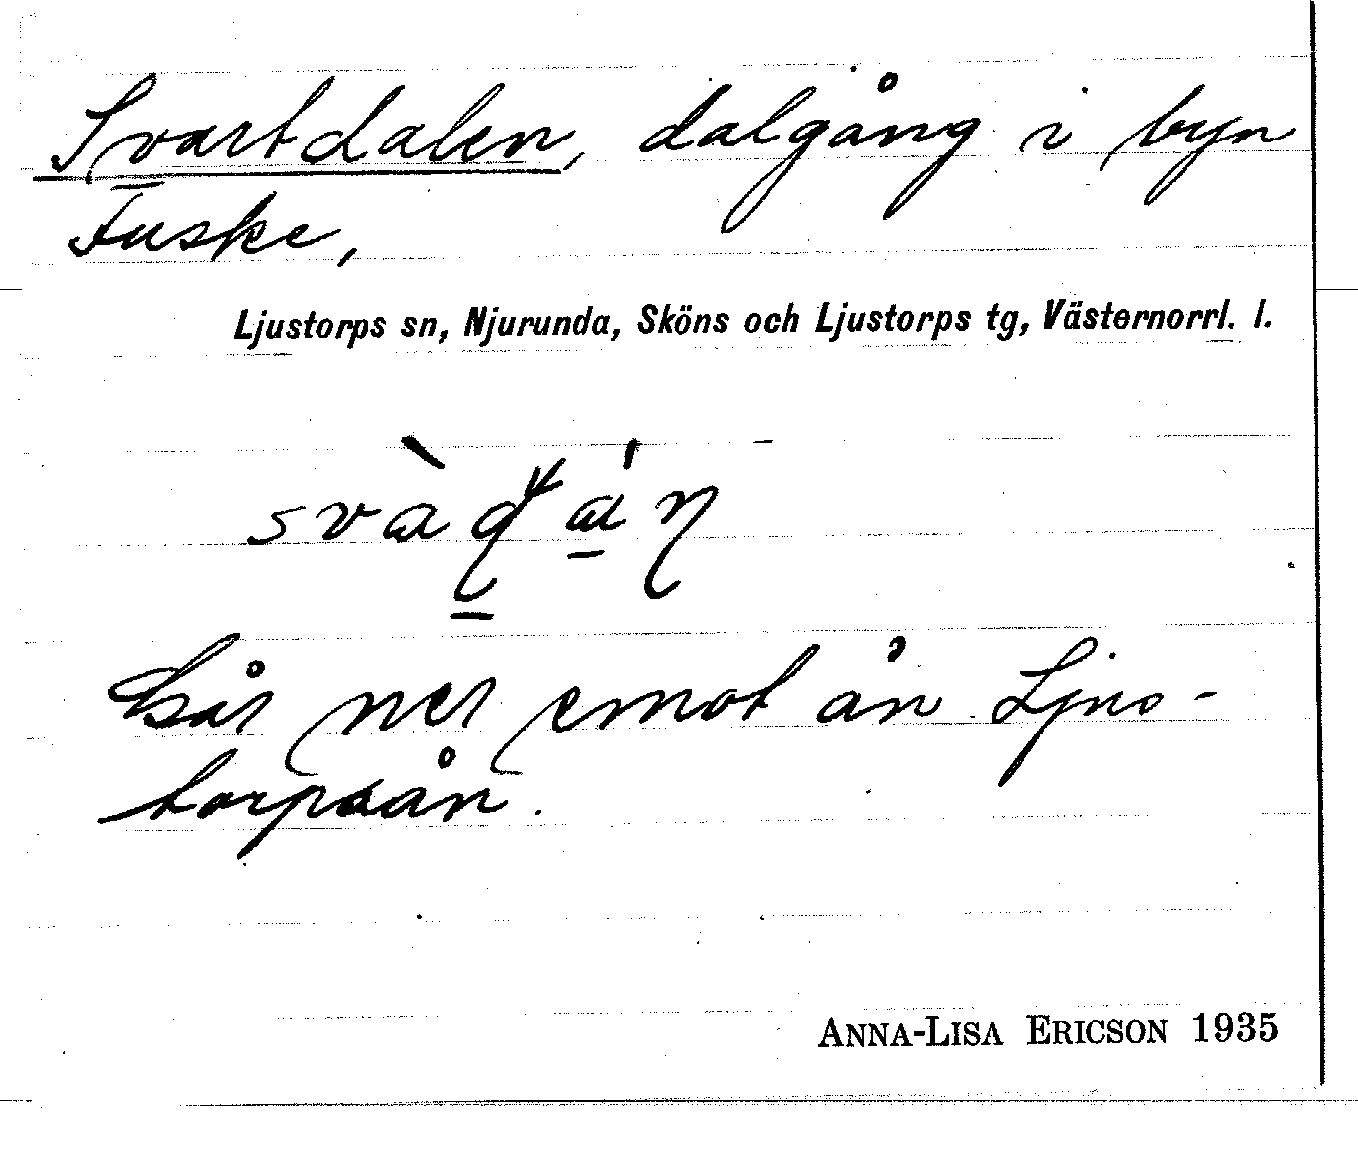 Svartdalen, dalgång i byn
Fuske,
Ljustorps sn, Njurunda, Sköns och Ljustorps tg, Västernorrl. l.
Går ner emot ån Ljus-
torpsån.
ANNA-LISA ERICSON 1935